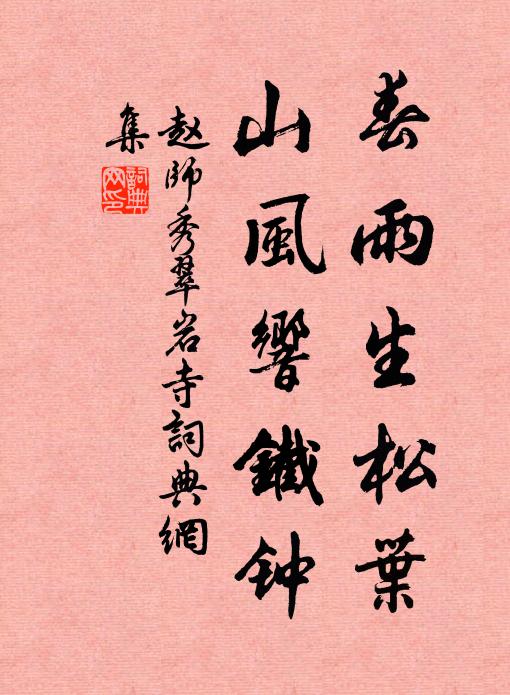 春雨生松葉
山風響鐵钟
赵師秀翠岩寺詞典網
集
詞典
网印